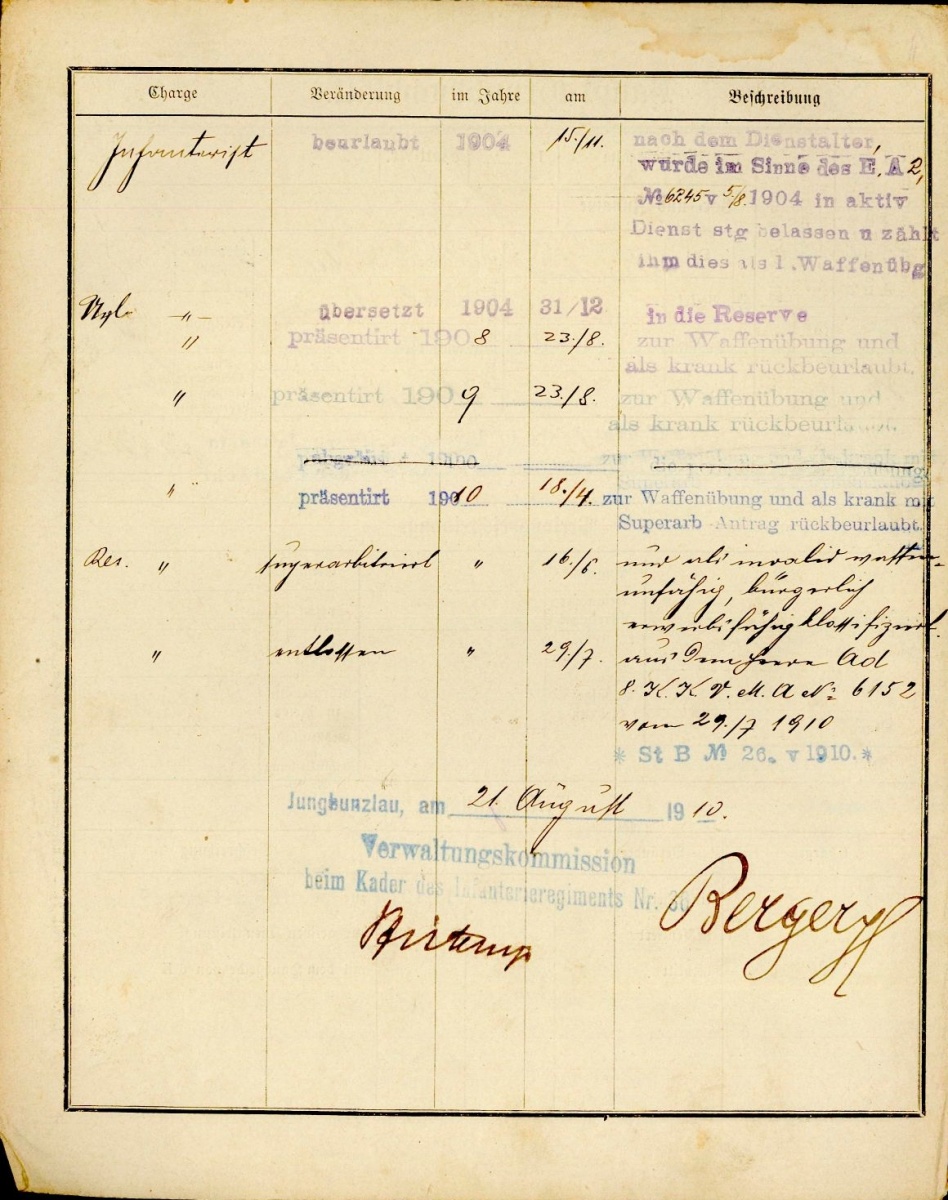 Charge Veränderung im Jahre am Beschreibung
Infanterist beurlaubt 1904 15./11. nach dem Dienstalter,
wurde im Sinne des E. A 2,
№ 6245 v 5/8. 1904 in aktiv
Dienst stg belassen u zählt
ihm dies als 1. Waffenübg
" übersetzt 1904 31/12 in die Reserve
" präsentirt 1908 23./8. zur Waffenübung und
als krank rückbeurlaubt.
" präsentirt 1909 23./8. zur Waffenübung und
als krank rückbeurlaubt.
" präsentirt 1910 18./4. zur Waffenübung und als krank mit
Superarb Antrag rückbeurlaubt.
Res. " superarbitriert " 16./6. und als invalid waffen-
unfähig, bürgerlich
erwerbsfähig klassifiziert.
" entlassen " 29./7. aus dem Heere Ad
8. K. K. V. M. A № 6152
vom 29./7 1910
* St B № 26. v 1910. *
Jungbunzlau, am 21. August 1910.
Verwaltungskommission
beim Kader des Infanterieregiments Nr. 36
Berger